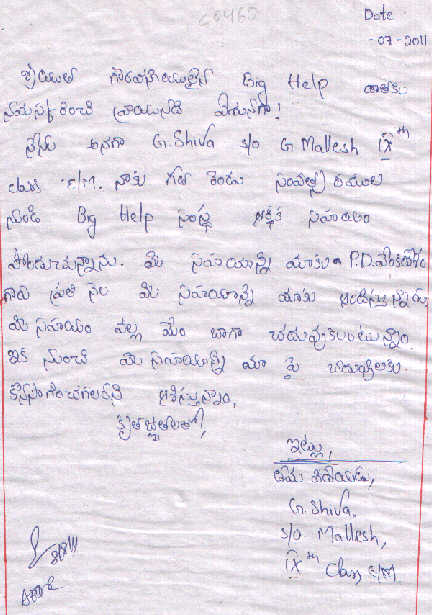 C0465
Date
-07-2011
శ్రీయుత గౌరవనీయులైన Big Help దాతలకు
నమస్కరించి వ్రాయునది ఏమనగా!
నేను అనగా G.Shiva s/o G Mallesh IX th
class E/M. నాకు గత రెండు సంవత్సరముల
నుండి Big Help సంస్థ ఆర్థిక సహాయం
పొందుచున్నాను. మీ సహాయాన్ని మాకు P.D.
గారు ప్రతి నెల మీ సహాయాన్ని మాకు అందిస్తున్నారు,
మీ సహాయం వల్ల మేం బాగా చదువుకుంటున్నాం.
ఇక నుంచి మీ సహాయాన్ని మా పై చదువులకు
కొనసాగించగలరని ఆశిస్తున్నాం,
కృతజ్ఞతలతో,
ఇట్లు,
తమ విధేయుడు,
G.Shiva.
s/o Mallesh,
IX th Class E/M